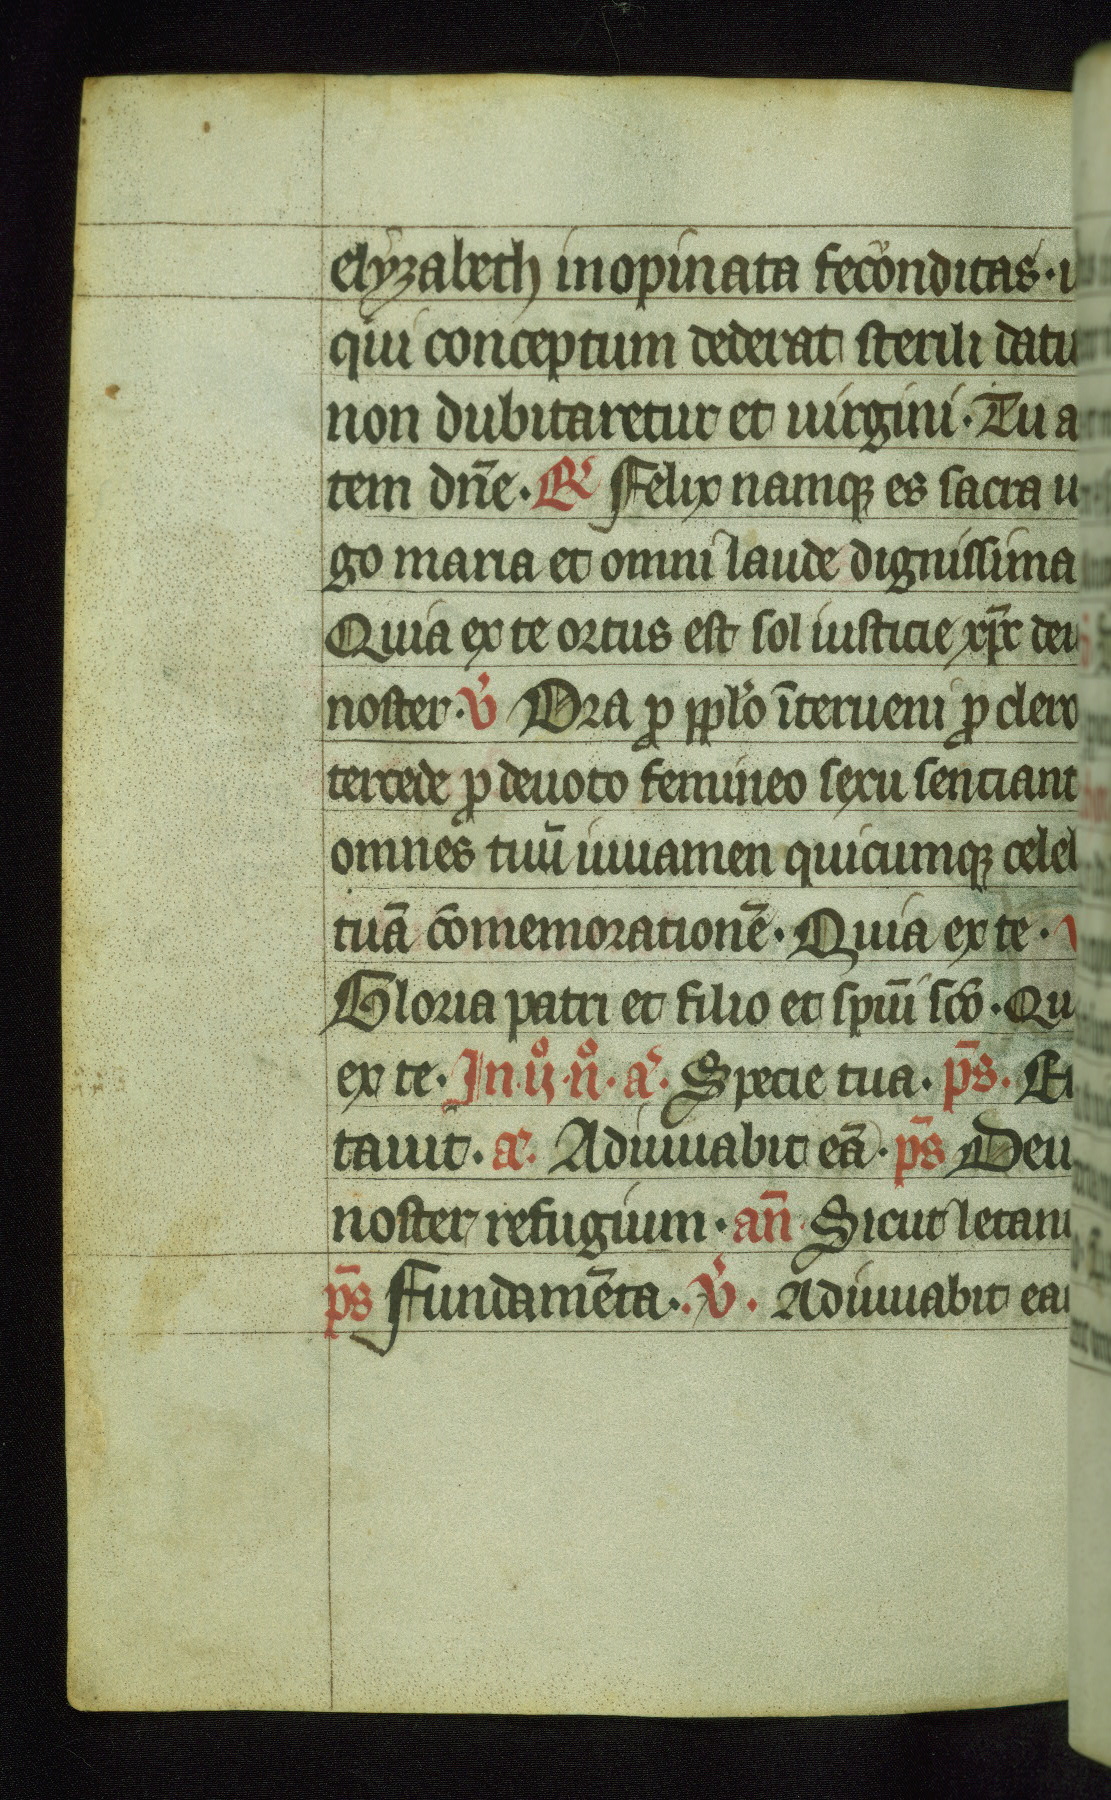 elyzabeth inopinata fecōnditas·
qui conceptum dederat sterili datu
non dubitaretur et uirgini· Tu a
tem dn̄e· R̓ Felix namqꝫ es sacra u
go maria et omni laude dignissima
Quia ex te ortus est sol iusticie xp̄c deu
noster· v̓ Ora ꝓ pplō īterueni ꝓ clero
tercede ꝓ deuoto femineo sexu senciant
omnes tuū iuuamen quicumqꝫ celeb
tuā cōmemorationē· Quia ex te·
Gloria patri et filio et spūi scō· Qu
ex te· In· ij°· n°· a̓· Specie tua· p̄s· E
tauit· a̓· Adiuuabit eā· p̄s Deu
noster refugium· an̄· Sicut letan
p̄s Fundamēta· v̓· Adiuuabit ea